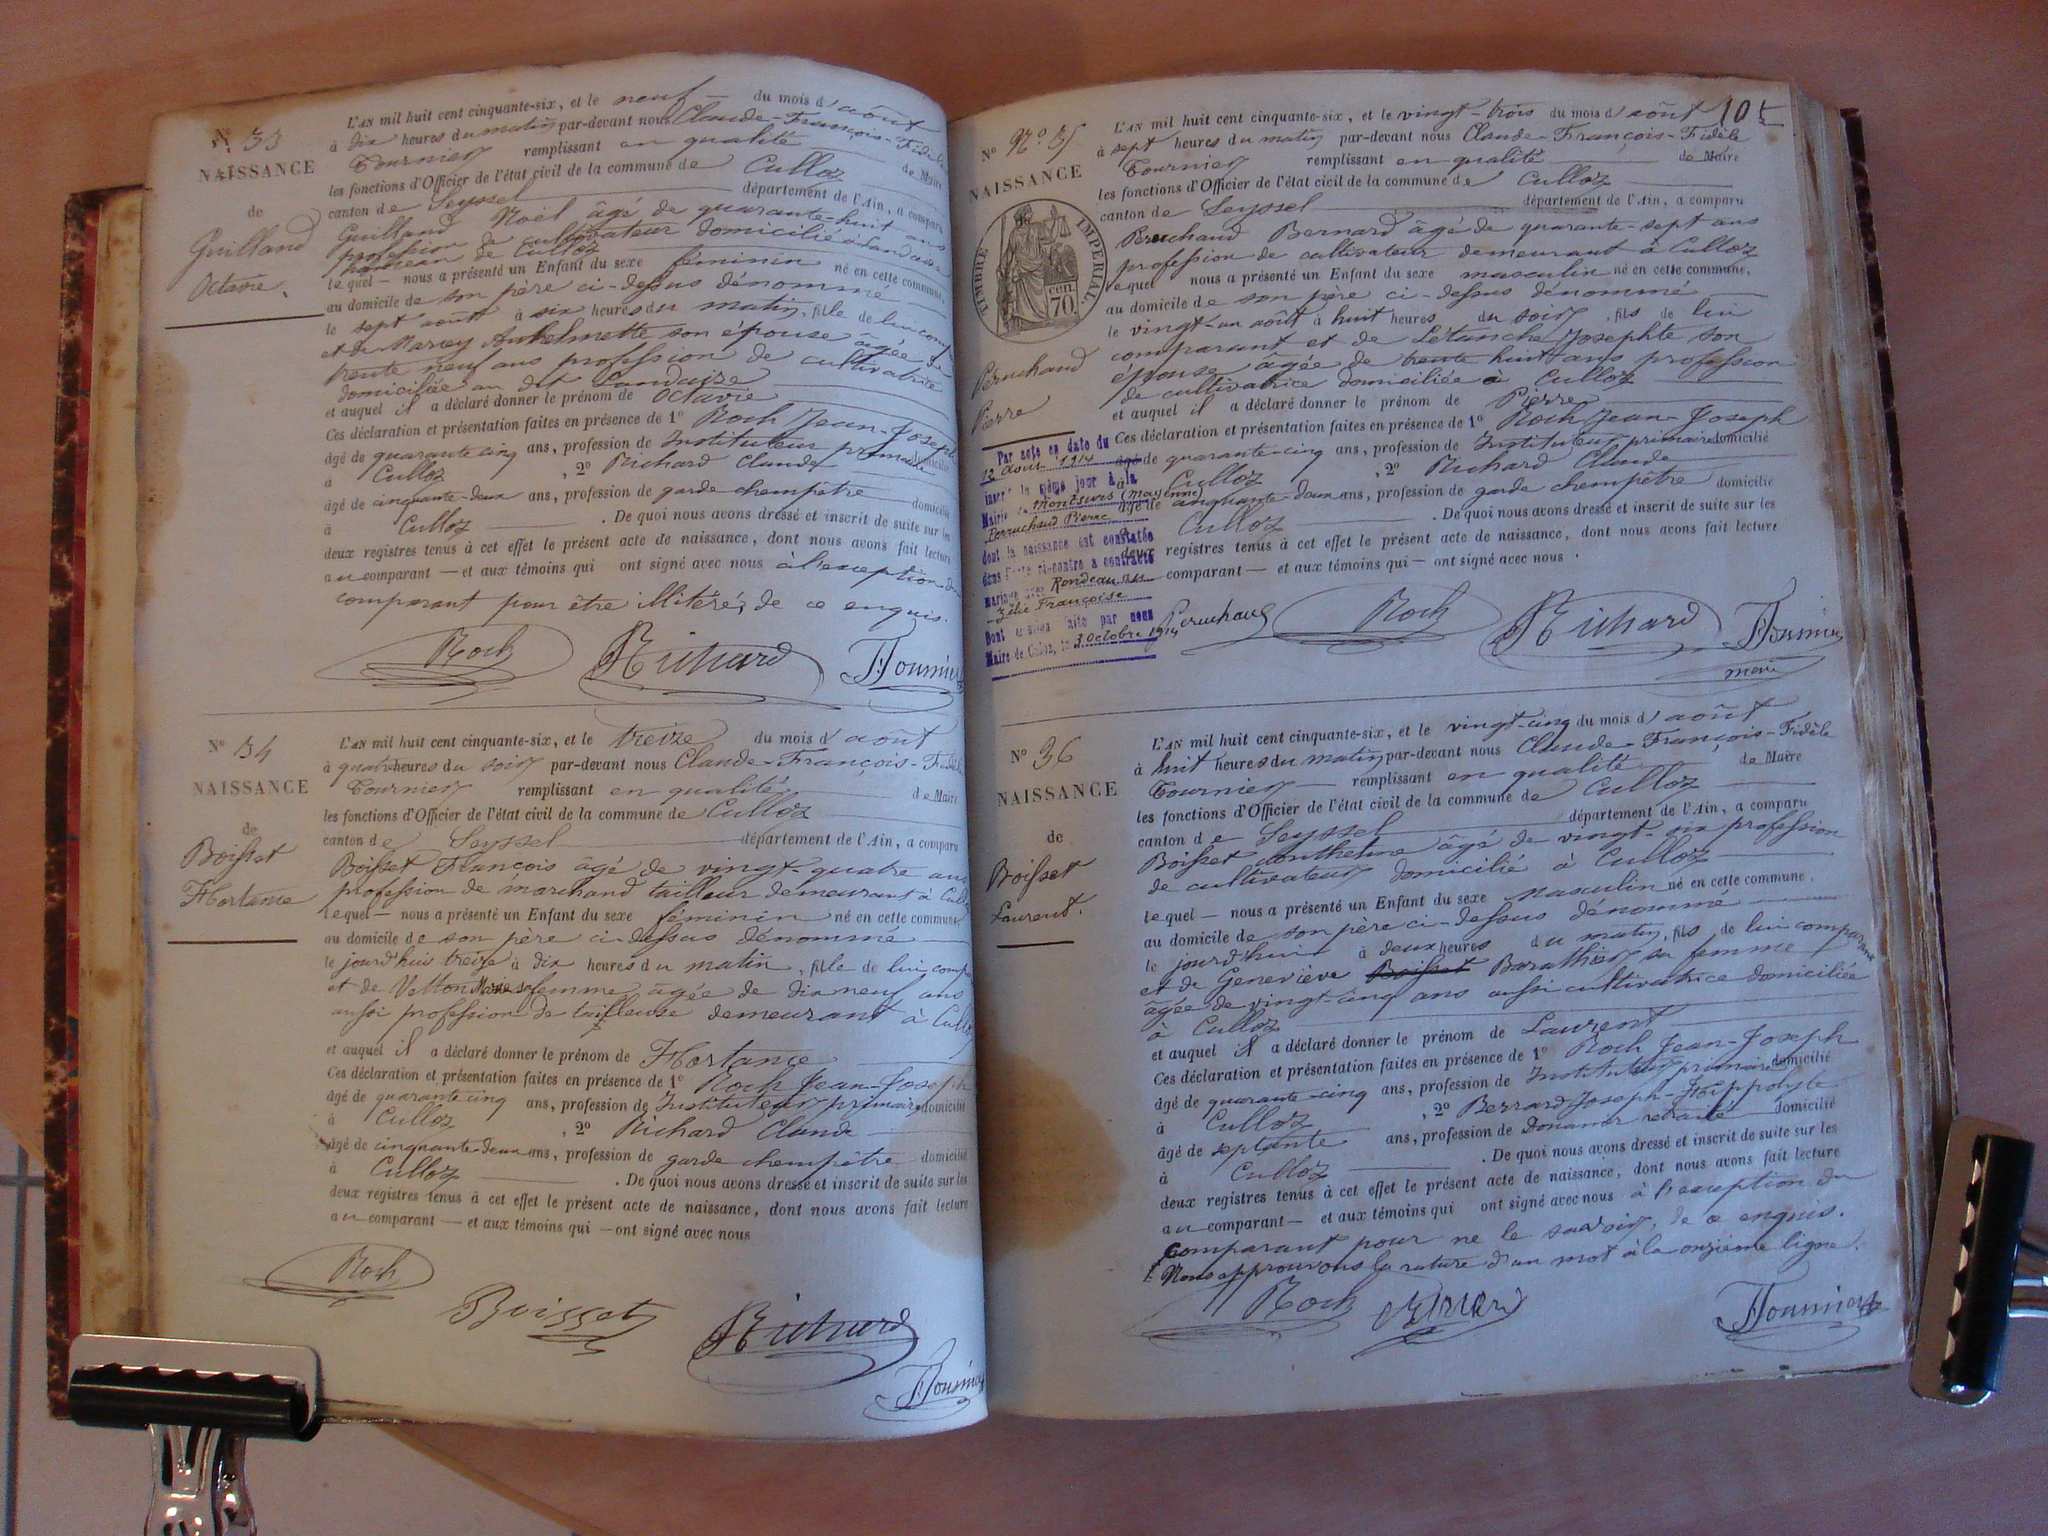 N° 33
NAISSANCE
de
Guilland
Octavie
L'AN mil huit cent cinquante-six, et le neuf du mois d'août
à dix heures du matin par-devant nous Claude-François-Fidèle
Tournier remplissant en qualité de Maire
les fonctions d'Officier de l'état civil de la commune de Culloz
canton de Seyssel département de l'Ain, a comparu
Guilland Noël âgé de quarante-huit ans
profession de cultivateur domicilié à Landaise
hameau de Culloz
lequel — nous a présenté un Enfant du sexe féminin né en cette commune,
au domicile de son père ci-dessus dénommé
le sept août à six heures du matin, fille de lui comp
et de Marcy Anthelmette son épouse agée de
trente neuf ans profession de cultivatrice
domiciliée au dit Landaize
et auquel il a déclaré donner le prénom de Octavie
Ces déclaration et présentation faites en présence de 1° Roch Jean-Joseph
âgé de quarante cinq ans, profession de Instituteur primaire domicilié
à Culloz, 2° Richard Claude
âgé de cinquante-deux ans, profession de garde chempêtre domicilié
à Culloz. De quoi nous avons dressé et inscrit de suite sur les
deux registres tenus à cet effet le présent acte de naissance, dont nous avons fait lecture
au comparant — et aux témoins qui ont signé avec nous à l'exception du
comparant pour être illitéré, de ce enquis.
Roch Richard Tournier
N° 34
NAISSANCE
de
Boisset
Hortance
L'AN mil huit cent cinquante-six, et le treize du mois d'août
à quatre heures du soir par-devant nous Claude-François-Fidèle
Tournier remplissant en qualité de Maire
les fonctions d'Officier de l'état civil de la commune de Culloz
canton de Seyssel département de l'Ain, a comparu
Boisset François âgé de vingt-quatre ans
profession de marchand tailleur demeurant à Culloz
lequel — nous a présenté un Enfant du sexe féminin né en cette commune,
au domicile de son père ci-dessus dénommé
le jourd'hui treize à dix heures du matin, fille de lui comp
et de Vetton Marie sa femme âgée de dix neuf ans
aussi profession de tailleuse demeurant à Culloz
et auquel il a déclaré donner le prénom de Hortance
Ces déclaration et présentation faites en présence de 1° Roch Jean-Joseph
âgé de quarante cinq ans, profession de Instituteur primaire domicilié
à Culloz, 2° Richard Claude
âgé de cinquante-deux ans, profession de garde chempêtre domicilié
à Culloz. De quoi nous avons dressé et inscrit de suite sur les
deux registres tenus à cet effet le présent acte de naissance, dont nous avons fait lecture
au comparant — et aux témoins qui — ont signé avec nous
Roch
Boisset
Richard
Tournier
105
N° N° 35
NAISSANCE
TIMBRE IMPERIAL
70 cen.
Péruchaud
Pierre
L'AN mil huit cent cinquante-six, et le vingt-trois du mois d'août
à sept heures du matin par-devant nous Claude-François-Fidèle
Tournier remplissant en qualité de Maire
les fonctions d'Officier de l'état civil de la commune de Culloz
canton de Seyssel département de l'Ain, a comparu
Peruchaud Bernard âgé de quarante-sept ans
profession de cultivateur demeurant à Culloz
lequel nous a présenté un Enfant du sexe masculin né en cette commune,
au domicile de son père ci-dessus dénommé
le vingt-un août à huit heures du soir, fils de lui
comparant et de Létanche Josephte son
épouse âgée de trente huit ans profession
de cultivatrice domiciliée à Culloz
et auquel il a déclaré donner le prénom de Pierre
Ces déclaration et présentation faites en présence de 1° Roch Jean-Joseph
âgé de quarante-cinq ans, profession de Instituteur primaire domicilié
à Culloz, 2° Richard Claude
âgé de cinquante-deux ans, profession de garde chempêtre domicilié
à Culloz. De quoi nous avons dressé et inscrit de suite sur les
deux registres tenus à cet effet le présent acte de naissance, dont nous avons fait lecture
comparant — et aux témoins qui — ont signé avec nous.
Par acte en date du
12 août 1914
inscrit le même jour à la
Mairie de Montsurs (Mayenne)
Perruchaud Pierre
dont la naissance est constatée
dans l'acte ci-contre a contracté
mariage avec Rondeau
Zélie Françoise
Dont mention faite par nous
Maire de Culoz, le 3 Octobre 1914
Peruchaud Roch Richard Tournier
maire
N° 36
NAISSANCE
de
Boisset
Laurent.
L'AN mil huit cent cinquante-six, et le vingt-cinq du mois d'août
à huit heures du matin par-devant nous Claude-François-Fidèle
Tournier remplissant en qualité de Maire
les fonctions d'Officier de l'état civil de la commune de Culloz
canton de Seyssel département de l'Ain, a comparu
Boisset Anthelme âgé de vingt-six profession
de cultivateur domicilié à Culloz
lequel — nous a présenté un Enfant du sexe masculin né en cette commune,
au domicile de son père ci-dessus dénommé
le jourd'hui à deux heures du matin, fils de lui comparant
et de Geneviève Boisset Barathier sa femme
âgée de vingt-cinq ans aussi cultivatrice domiciliée
à Culloz
et auquel il a déclaré donner le prénom de Laurent
Ces déclaration et présentation faites en présence de 1° Roch Jean-Joseph
âgé de quarante-cinq ans, profession de Instituteur primaire domicilié
à Culloz, 2° Berrard Joseph-Hippolyte
âgé de septente ans, profession de Douanier retraité domicilié
à Culloz. De quoi nous avons dressé et inscrit de suite sur les
deux registres tenus à cet effet le présent acte de naissance, dont nous avons fait lecture
au comparant — et aux témoins qui ont signé avec nous à l'exception du
comparant pour ne le savoir, de ce enquis.
Nous approuvons la rature d'un mot à la onzième ligne.
Roch Tournier